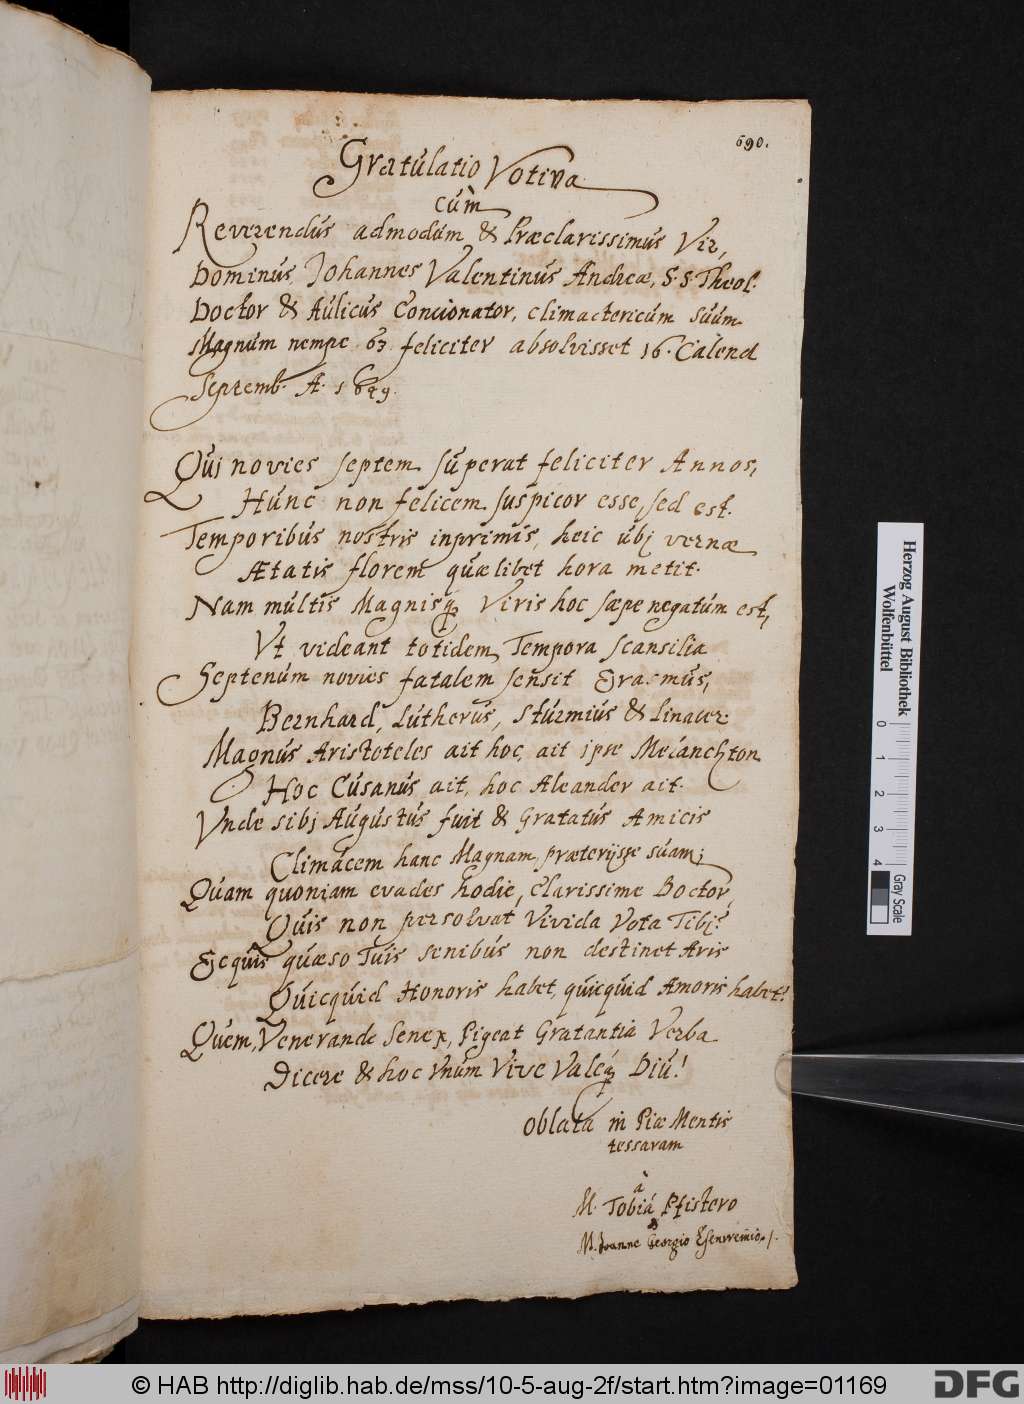 690.
Gratulatio Votiva
cùm
Reverendus admodùm & Præclarissimus Vir,
Dominus Johannes Valentinus Andreæ, S.S Theol.
Doctor & Aulicus Concionator, climactericum suum
Magnum nempe 63 feliciter absolvisset 16. Calend
Septemb. A. 1649.
Qui novies septem superat feliciter Annos,
Hunc non felicem suspicor esse, sed est.
Temporibus nostris inprimis, heic ubj vernæ
Ætatis florem quælibet hora metit.
Nam multis Magnisq; Viris hoc sæpe negatum est,
Vt videant totidem Tempora scansilia
Septenum novies fatalem sensit Erasmus,
Bernhard, Lutherus, Sturmius & Linacer.
Magnus Aristoteles ait hoc, ait ipse Melanchton
Hoc Cusanus ait, hoc Aleander ait.
Vnde sibj Augustus fuit & Gratatus Amicis
Climacem hanc Magnam præterijsse suam;
Quam quoniam evades hodie, clarissime Doctor,
Quis non persolvat Vivida Vota Tibj?
Ecquis quæso Tuis senibus non destinet Aris
Quicquid Honoris habet, quicquid Amoris habet?
Quem, Venerande Senex, Pigeat Gratantia Verba
Dicere & hoc Vnum Vive Valeq; Diù!
oblata in Piæ Mentis
tessaram
à
M. Tobiâ Pfistero
&
M. Joanne Georgio
Herzog August Bibliothek
Wolfenbüttel
0 1 2 3 4
Gray Scale
© HAB http://diglib.hab.de/mss/10-5-aug-2f/start.htm?image=01169
DFG